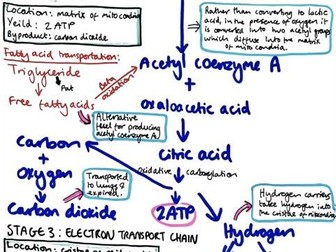 Location: matrix of mitocondria
Yeild: 2 ATP
Byproduct: carbon dioxide
Rather than converting to lactic
acid, in the presence of oxygen it
is converted into two acetyl groups
which diffuse into the matrix
of mitocondria.
Fatty acid transportation:
Triglyceride
Fat
Free fatty acids
Beta oxidation
Acetyl coenzyme A
+
oxaloacetic acid
Alternative
fuel for producing
acetyl coenzyme A
citric acid
oxidative carboxylation
Carbon
+
oxygen
Transported
to lungs &
expired.
Carbon dioxide
2ATP
Hydrogen
Hydrogen carriers
take hydrogen into
the cristae of mitocondria
STAGE 3: ELECTRON TRANSPORT CHAIN